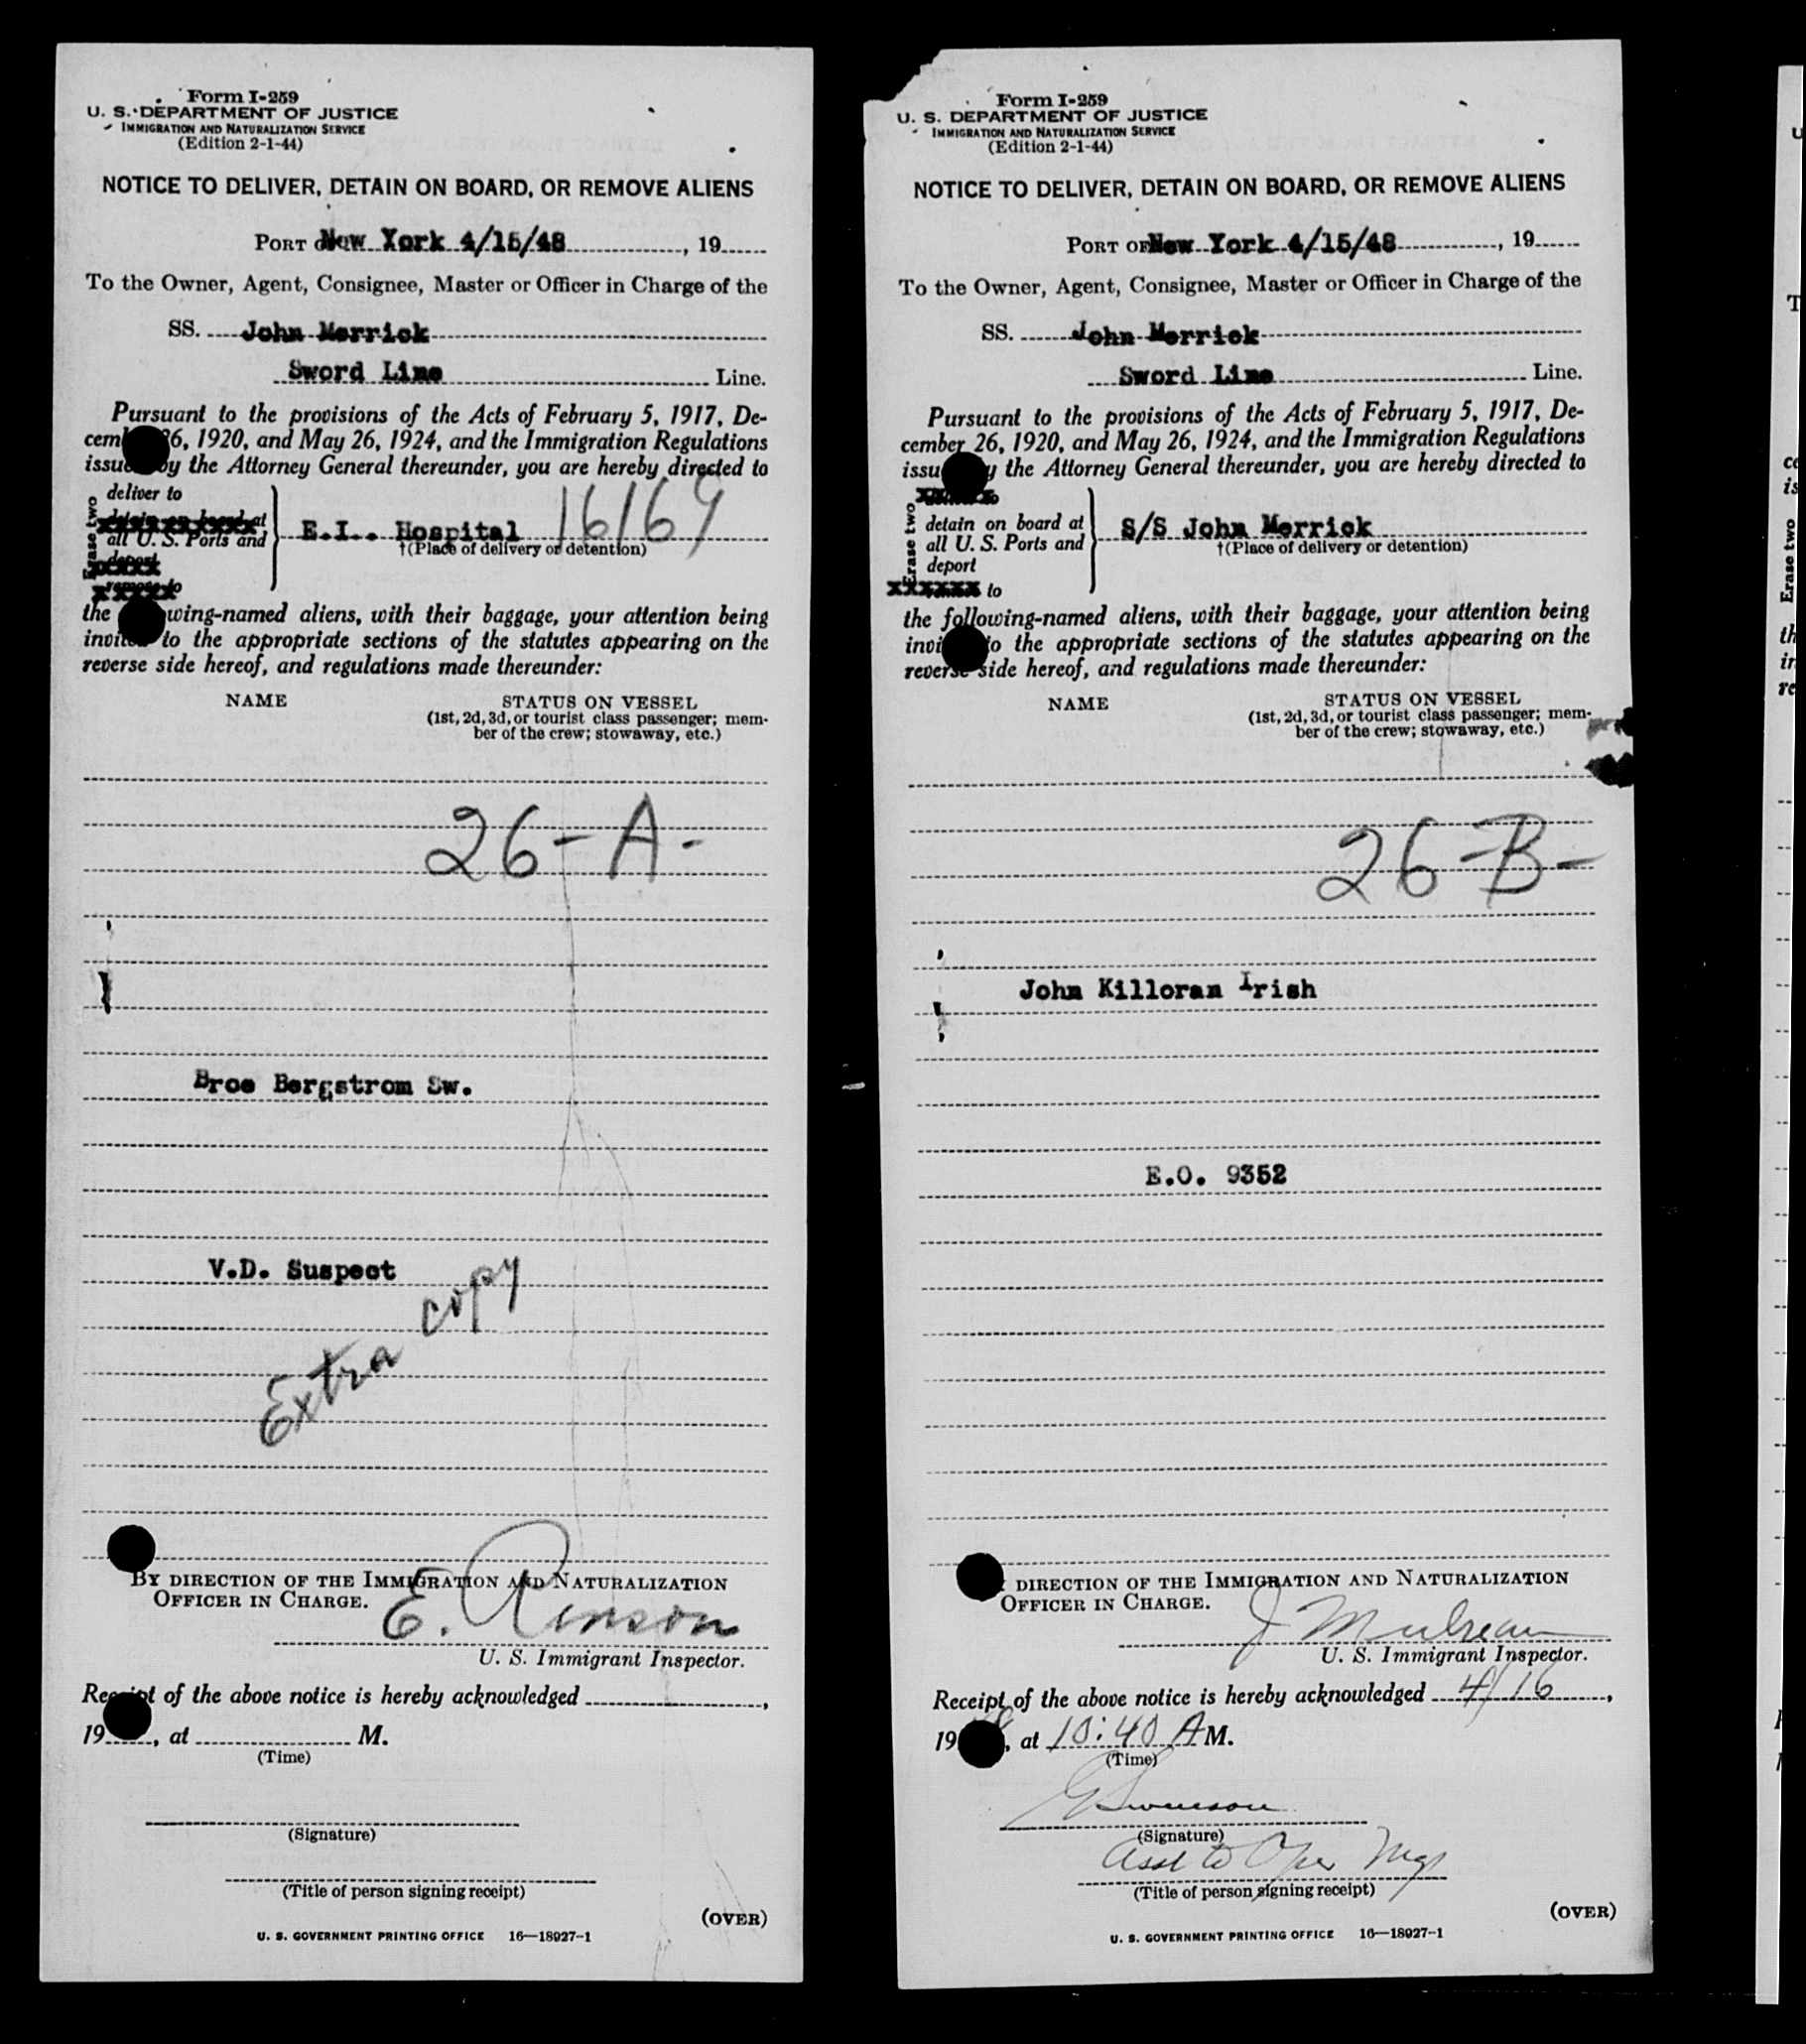 Form I-259
U. S. DEPARTMENT OF JUSTICE
IMMIGRATION AND NATURALIZATION SERVICE
(Edition 2-1-44)
NOTICE TO DELIVER, DETAIN ON BOARD, OR REMOVE ALIENS
PORT New York 4/15/48, 19
To the Owner, Agent, Consignee, Master or Officer in Charge of the
SS. John Merrick
Sword Line Line.
Pursuant to the provisions of the Acts of February 5, 1917, De-
26, 1920, and May 26, 1924, and the Immigration Regulations
by the Attorney General thereunder, you are hereby directed to
Erase two
deliver to
detain on board at
all U. S. Ports and
deport
remove to
E.I.. Hospital 16169
†(Place of delivery or detention)
the following-named aliens, with their baggage, your attention being
invited to the appropriate sections of the statutes appearing on the
reverse side hereof, and regulations made thereunder:
NAME STATUS ON VESSEL
(1st, 2d, 3d, or tourist class passenger; mem-
ber of the crew; stowaway, etc.)
26-A-
Broe Bergstrom Sw.
V.D. Suspect
Extra copy
BY DIRECTION OF THE IMMIGRATION AND NATURALIZATION
OFFICER IN CHARGE.
E.
U. S. Immigrant Inspector.
Receipt of the above notice is hereby acknowledged ,
19 , at M.
(Time)
(Signature)
(Title of person signing receipt)
(OVER)
U. S. GOVERNMENT PRINTING OFFICE 16—18927-1
Form I-259
U. S. DEPARTMENT OF JUSTICE
IMMIGRATION AND NATURALIZATION SERVICE
(Edition 2-1-44)
NOTICE TO DELIVER, DETAIN ON BOARD, OR REMOVE ALIENS
PORT OF New York 4/15/48, 19
To the Owner, Agent, Consignee, Master or Officer in Charge of the
SS. John Merrick
Sword Line Line.
Pursuant to the provisions of the Acts of February 5, 1917, De-
cember 26, 1920, and May 26, 1924, and the Immigration Regulations
issued by the Attorney General thereunder, you are hereby directed to
Erase two
detain on board at
all U. S. Ports and
deport
to
S/S John Merrick
†(Place of delivery or detention)
the following-named aliens, with their baggage, your attention being
invited to the appropriate sections of the statutes appearing on the
reverse side hereof, and regulations made thereunder:
NAME STATUS ON VESSEL
(1st, 2d, 3d, or tourist class passenger; mem-
ber of the crew; stowaway, etc.)
26-B-
John Killoran Irish
E.O. 9352
DIRECTION OF THE IMMIGRATION AND NATURALIZATION
OFFICER IN CHARGE.
J
U. S. Immigrant Inspector.
Receipt of the above notice is hereby acknowledged 4/16,
19 , at 10:40 AM.
(Time)
G Swenson
(Signature)
Asst to Oper Mgr
(Title of person signing receipt)
(OVER)
U. S. GOVERNMENT PRINTING OFFICE 16—18927-1